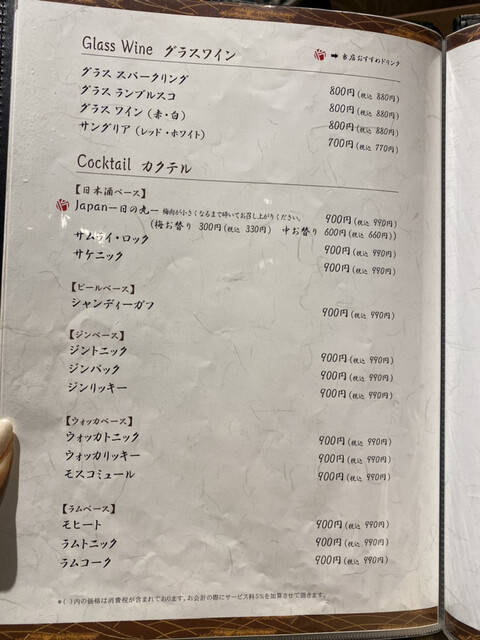 Glass Wine グラスワイン
➡ 当店おすすめドリンク
グラス スパークリング 800円(税込 880円)
グラス ランブルスコ 800円(税込 880円)
グラス ワイン(赤・白) 800円(税込 880円)
サングリア(レッド・ホワイト) 700円(税込 770円)
Cocktail カクテル
【日本酒ベース】
Japan ー日の丸ー 梅肉が小さくなるまで砕いてお召し上がりください。 900円(税込 990円)
(梅お替り 300円(税込 330円) 中お替り 600円(税込 660円))
サムライ・ロック 900円(税込 990円)
サケニック 900円(税込 990円)
【ビールベース】
シャンディーガフ 900円(税込 990円)
【ジンベース】
ジントニック 900円(税込 990円)
ジンバック 900円(税込 990円)
ジンリッキー 900円(税込 990円)
【ウォッカベース】
ウォッカトニック 900円(税込 990円)
ウォッカリッキー 900円(税込 990円)
モスコミュール 900円(税込 990円)
【ラムベース】
モヒート 900円(税込 990円)
ラムトニック 900円(税込 990円)
ラムコーク 900円(税込 990円)
*( )内の価格は消費税が含まれております。お会計の際にサービス料5%を加算させて頂きます。